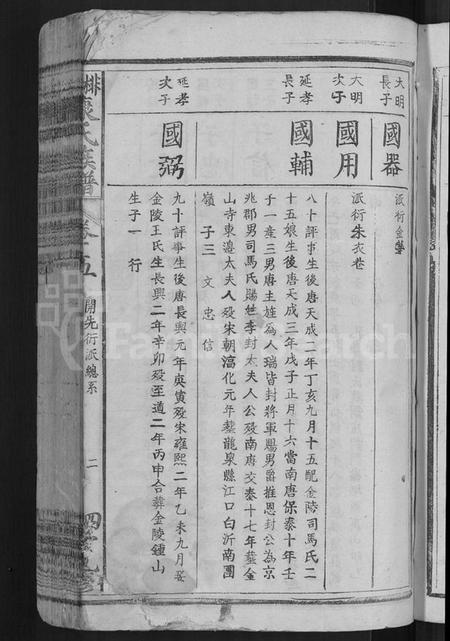 大明長子
國器
派衍金
大明次子
國用
派衍朱衣巷
延孝長子
國輔
八十評事生後唐天成二年丁亥九月十五配金陵司馬氏二
十五娘生後唐天成三年戊子正月十六當南唐保泰十年壬
子一產三男唐主旌為人瑞皆封將軍賜男爵推恩封公為京
兆郡男司馬氏賜姓李封太夫人公殁南唐交泰十七年葬金
山寺東邊太夫人殁宋朝淳化元年葬龍泉縣江口白沂南團
嶺 子三 文 忠 信
延孝次子
國弼
九十評事生後唐長興元年庚寅殁宋雍熙二年乙未九月娶
金陵王氏生長興二年辛卯殁至道二年丙申合葬金陵鍾山
生子一 行
氏族譜
卷十五
開先衍派總系
二
FamilySearch